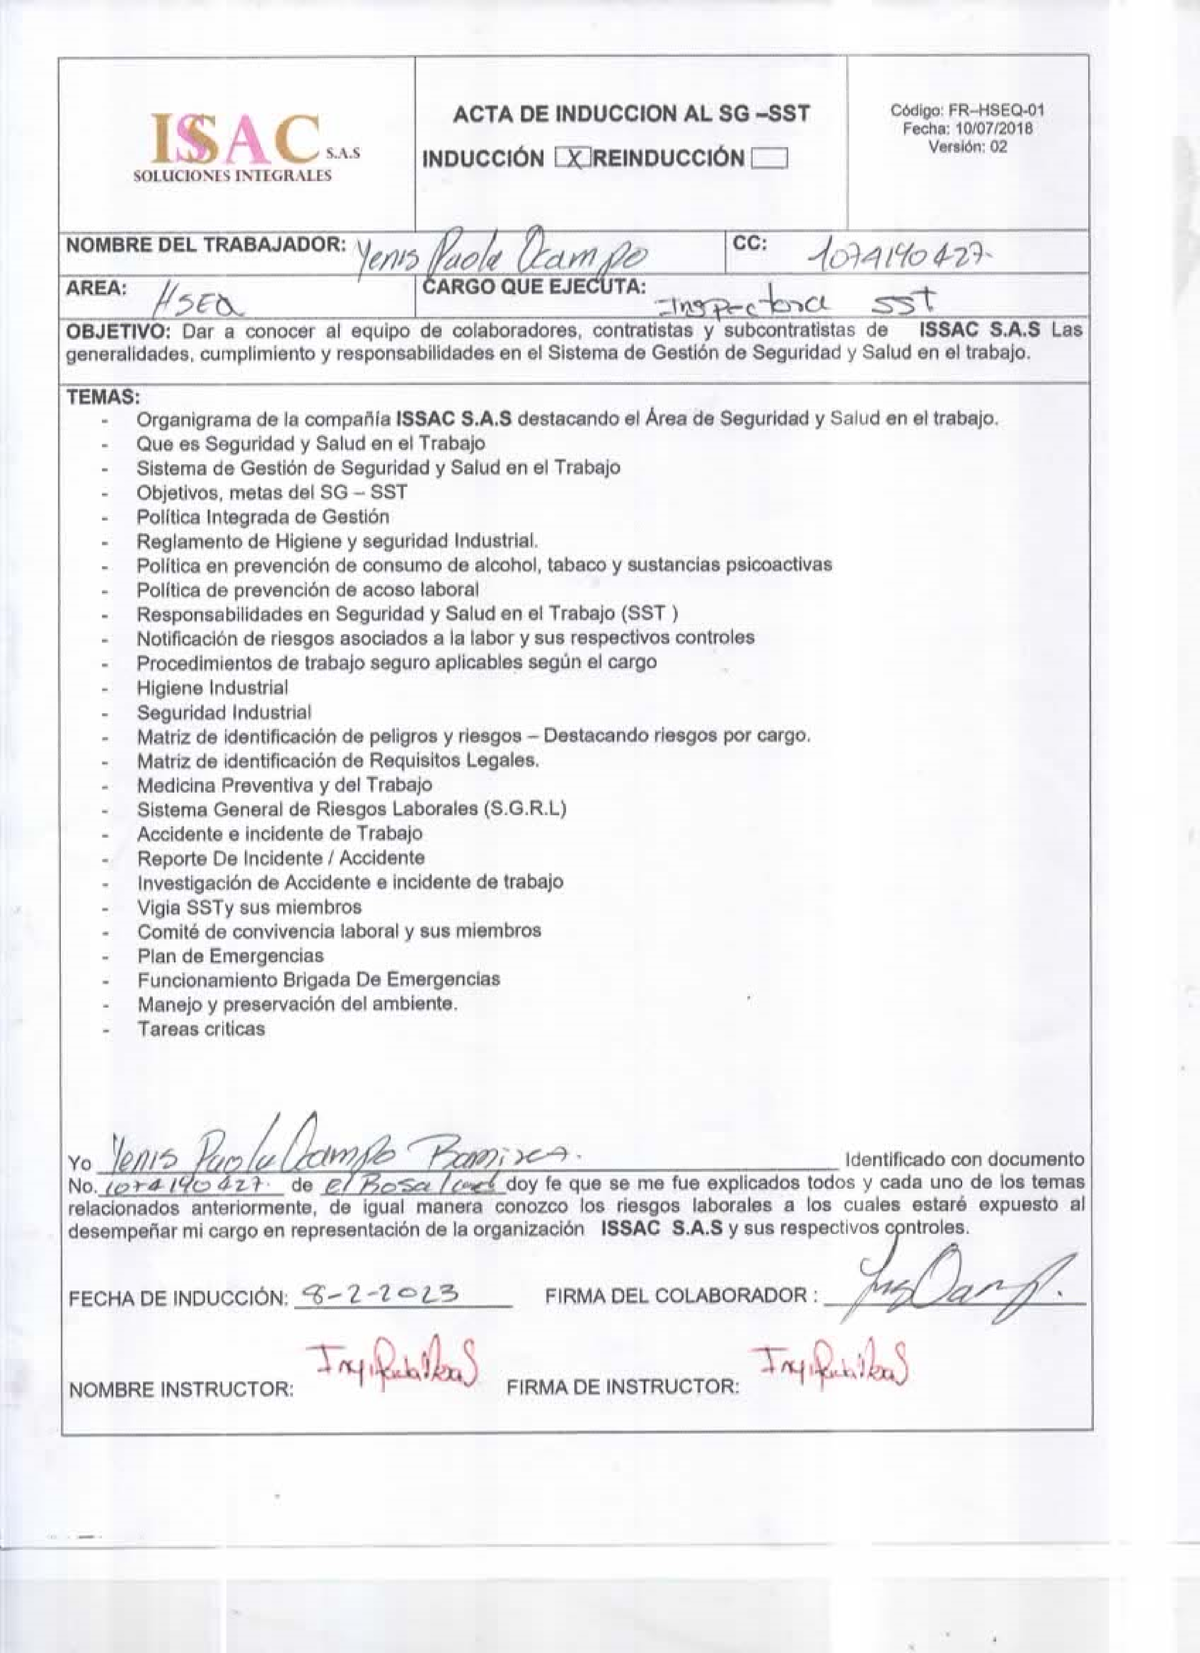 ISAC S.A.S
SOLUCIONES INTEGRALES
ACTA DE INDUCCION AL SG –SST
INDUCCIÓN X REINDUCCIÓN
Código: FR–HSEQ-01
Fecha: 10/07/2018
Versión: 02
NOMBRE DEL TRABAJADOR: Yenis Paola Ocampo
CC: 1074190427-
AREA: HSEQ
CARGO QUE EJECUTA: Inspectora SST
OBJETIVO: Dar a conocer al equipo de colaboradores, contratistas y subcontratistas de ISSAC S.A.S Las
generalidades, cumplimiento y responsabilidades en el Sistema de Gestión de Seguridad y Salud en el trabajo.
TEMAS:
- Organigrama de la compañía ISSAC S.A.S destacando el Área de Seguridad y Salud en el trabajo.
- Que es Seguridad y Salud en el Trabajo
- Sistema de Gestión de Seguridad y Salud en el Trabajo
- Objetivos, metas del SG – SST
- Política Integrada de Gestión
- Reglamento de Higiene y seguridad Industrial.
- Política en prevención de consumo de alcohol, tabaco y sustancias psicoactivas
- Política de prevención de acoso laboral
- Responsabilidades en Seguridad y Salud en el Trabajo (SST )
- Notificación de riesgos asociados a la labor y sus respectivos controles
- Procedimientos de trabajo seguro aplicables según el cargo
- Higiene Industrial
- Seguridad Industrial
- Matriz de identificación de peligros y riesgos – Destacando riesgos por cargo.
- Matriz de identificación de Requisitos Legales.
- Medicina Preventiva y del Trabajo
- Sistema General de Riesgos Laborales (S.G.R.L)
- Accidente e incidente de Trabajo
- Reporte De Incidente / Accidente
- Investigación de Accidente e incidente de trabajo
- Vigia SSTy sus miembros
- Comité de convivencia laboral y sus miembros
- Plan de Emergencias
- Funcionamiento Brigada De Emergencias
- Manejo y preservación del ambiente.
- Tareas criticas
Yo Yenis Paola Ocampo Ramirez. Identificado con documento
No. 1074190427. de el Rosal doy fe que se me fue explicados todos y cada uno de los temas
relacionados anteriormente, de igual manera conozco los riesgos laborales a los cuales estaré expuesto al
desempeñar mi cargo en representación de la organización ISSAC S.A.S y sus respectivos controles.
FECHA DE INDUCCIÓN: 8-2-2023
FIRMA DEL COLABORADOR :
NOMBRE INSTRUCTOR:
FIRMA DE INSTRUCTOR: